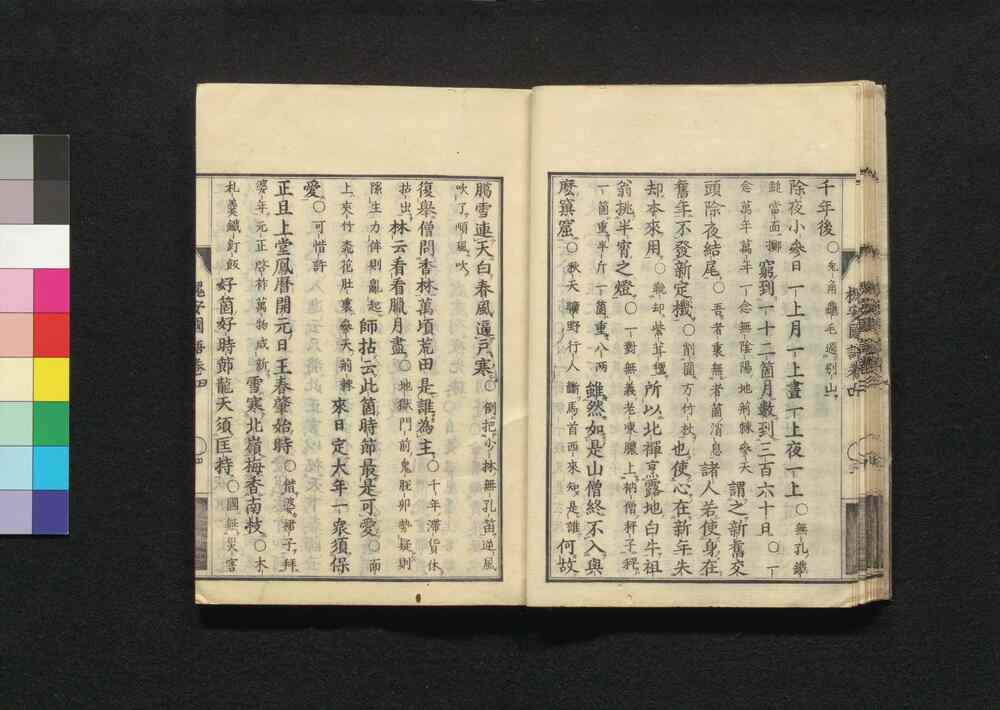 千年後○兔角龜毛過別山
除夜小參曰一上月一上晝一上夜一上○無孔鐵
鎚當面擲窮到一十二箇月數到三百六十日○一
念萬年萬年一念無陰陽地荊棘參天謂之新舊交
頭除夜結尾○吾者裏無者箇消息諸人若使身在
舊年不發新定機○削圓方竹杖也使心在新年朱
却本來用○鞭却紫茸氈所以北禪烹露地白牛祖
翁挑半宵之燈○一對無義老凍膿上衲僧秤子秤
一箇重半斤一箇重八兩雖然如是山僧終不入與
麼窠窟○秋天曠野行人斷馬首西來知是誰何故
臘雪連天白春風逼戶寒○倒把少林無孔笛逆風
吹了順風吹
復舉僧問香林萬頃荒田是誰為主○千年滯貨休
拈出林云看看臘月盡○地獄門前鬼脫卯勢疑則
隊生力俾則亂起師拈云此箇時節最是可愛○面
上夾竹桃花肚裏參天荊棘來日定大年一衆須保
愛○可惜許
正旦上堂鳳曆開元日王春肇始時○借婆裙子拜
婆年元正啓祚萬物咸新雪寒北嶺梅香南枝○木
札羹鐵釘飯好箇好時節龍天須匡持○國無災害
槐安國語卷四